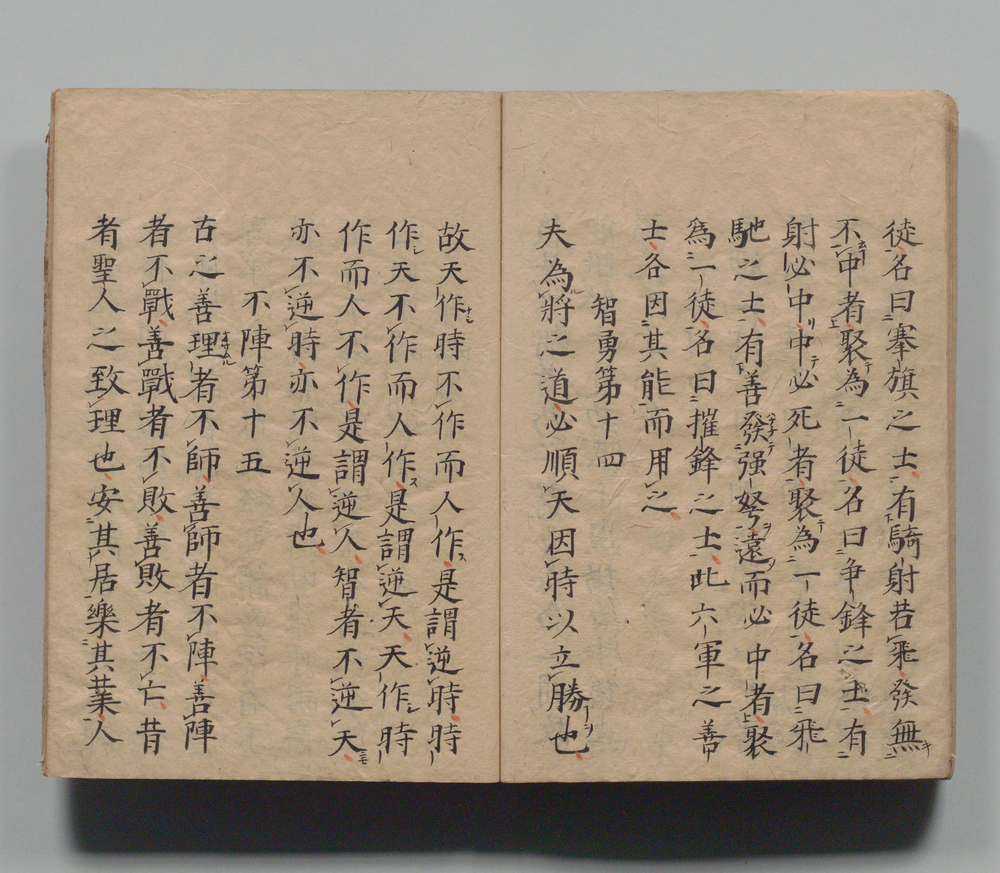 徒名曰搴旗之士有騎射若飛發無
不中者聚為一徒名曰争鋒之士有
射必中中必死者聚為一徒名曰飛
馳之士有善發强弩遠而必中者聚
為一徒名曰摧鋒之士此六軍之善
士各因其能而用之
智勇第十四
夫為將之道必順天因時以立勝也
故天作時不作而人作是謂逆時時
作天不作而人作是謂逆天天作時
作而人不作是謂逆人智者不逆天
亦不逆時亦不逆人也
不陣第十五
古之善理者不師善師者不陣善陣
者不戰善戰者不敗善敗者不亡昔
者聖人之致理也安其居樂其業人